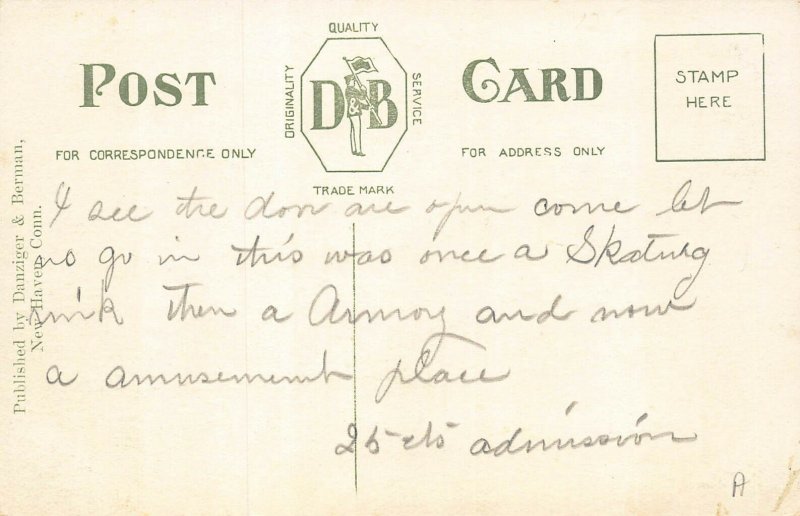 QUALITY
POST CARD
ORIGINALITY
D & B
SERVICE
STAMP
HERE
FOR CORRESPONDENCE ONLY
FOR ADDRESS ONLY
TRADE MARK
Published by Danziger & Berman,
New Haven, Conn.
I see the dors are open come let
us go in this was once a Skating
rink then a Armory and now
a amusement place
25 cts admission
A